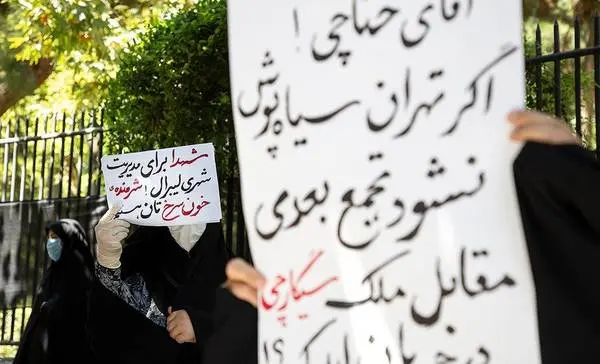 آقای حناچی !
اگر تهران سیاه پوش
نشود تجمع بعدی
مقابل ملک سیگارچی
در خیابان
شهدا برای مدیریت
شهری لیبرال ! شرمنده ی
خون سرخ تان هستیم